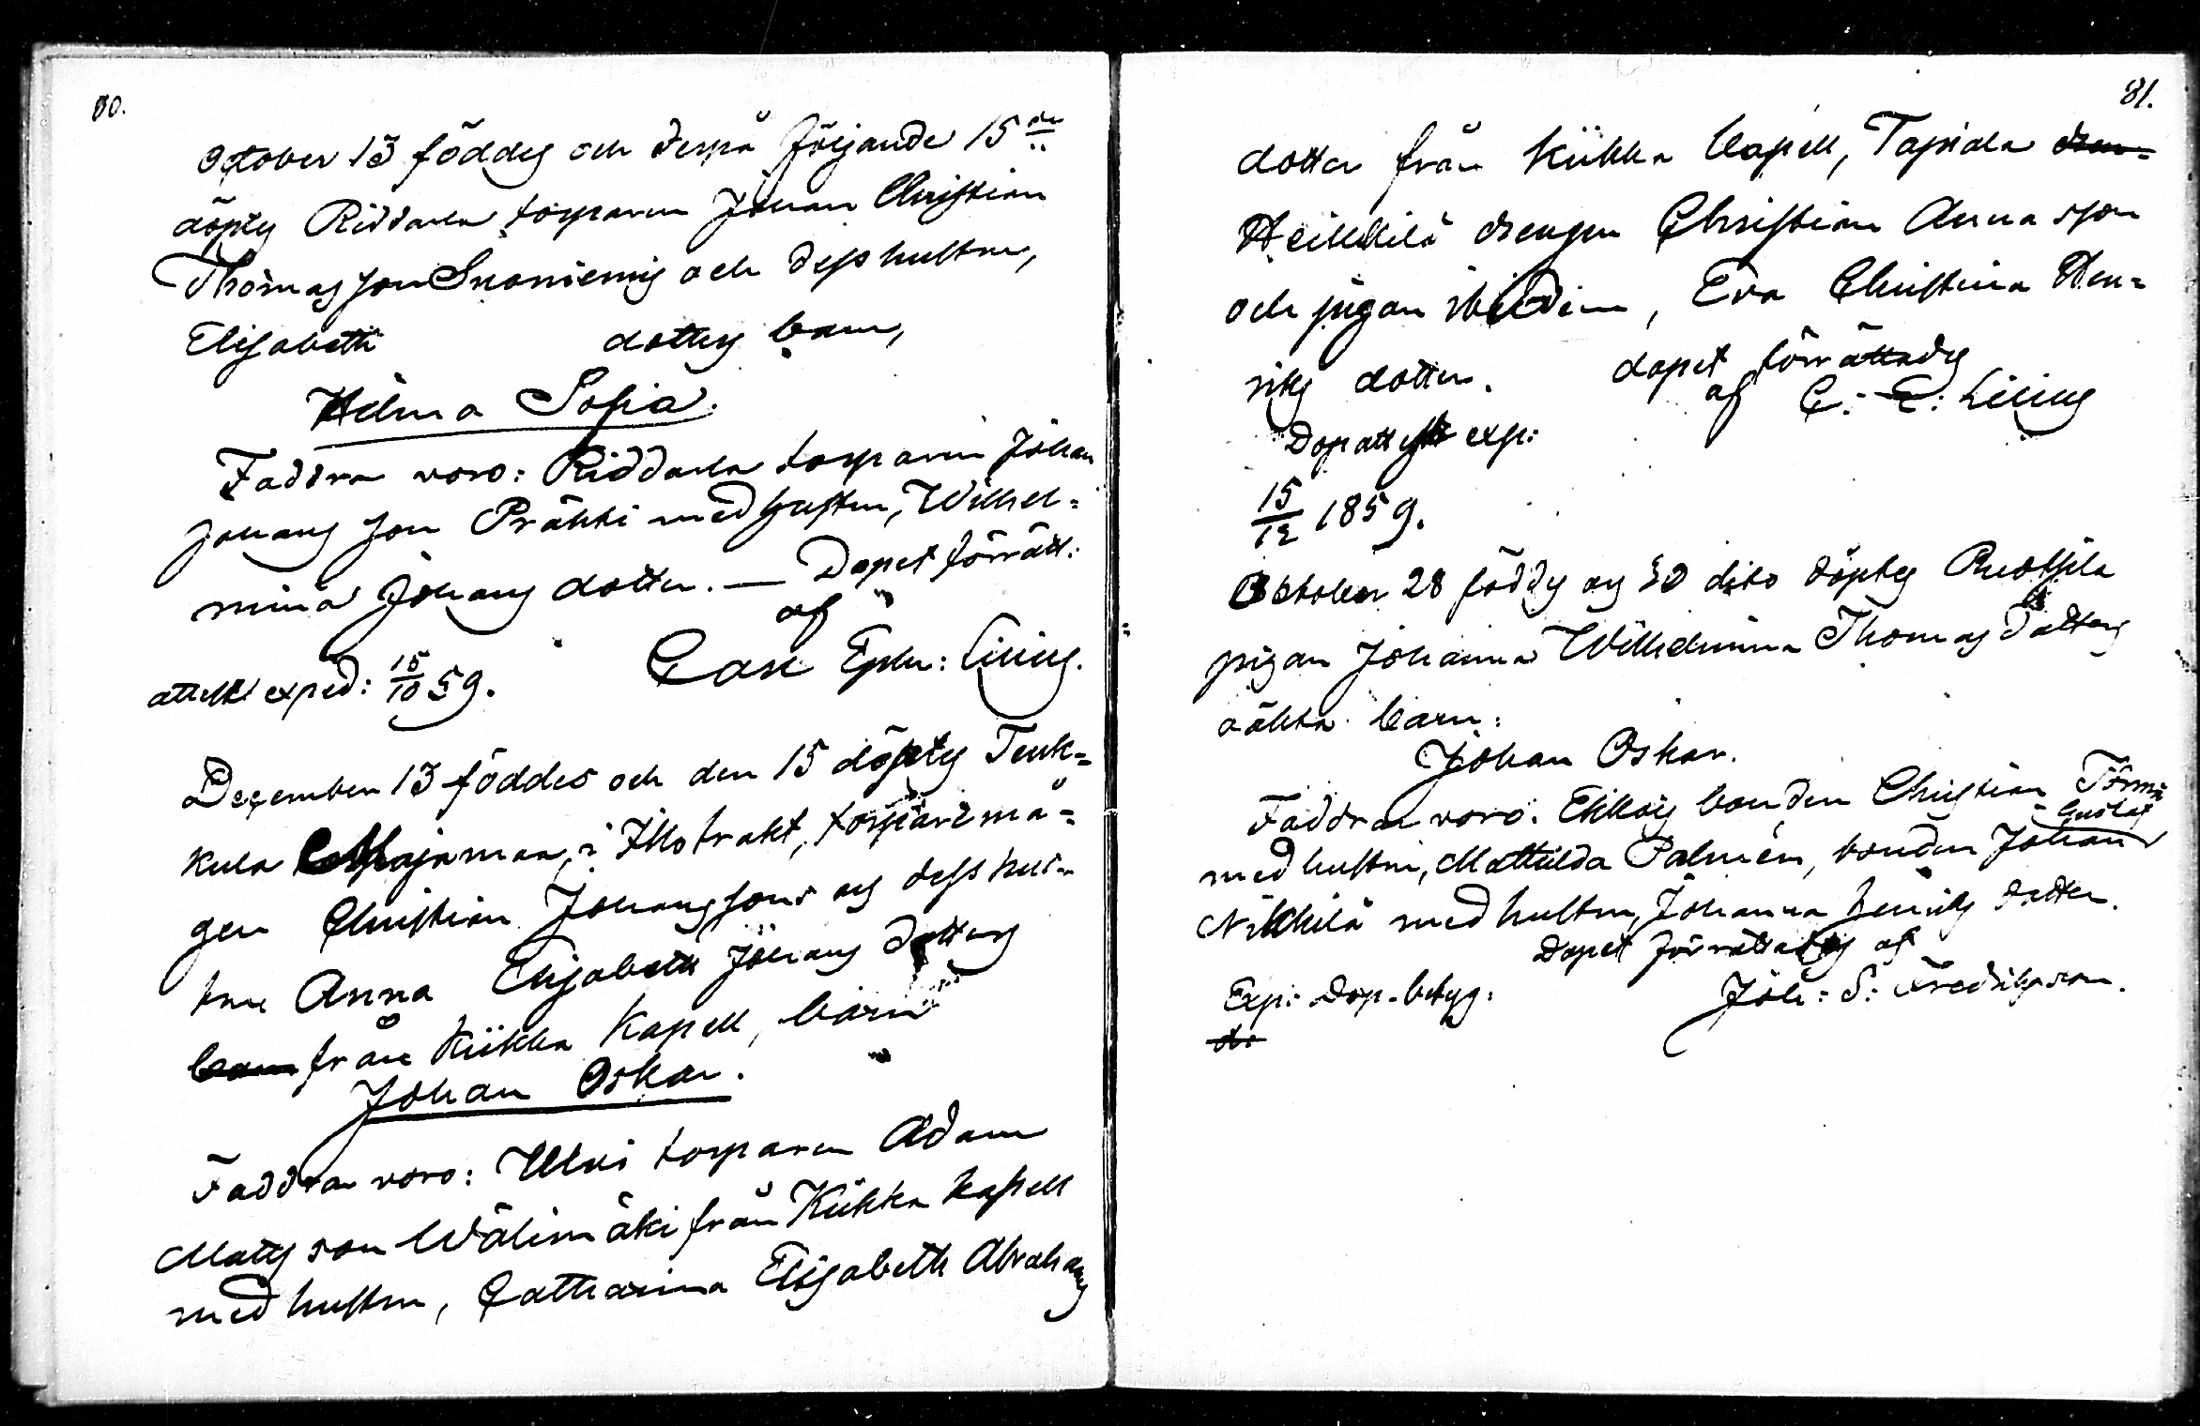 80.
October 13 föddes och derpå följande 15de
döptes Riddarla torparen Johan Christian
Thomas son Snoniemis och dess hustru,
Elisabeth dotters barn,
Hilma Sofia.
Faddra voro: Riddarla torparen Johan
Johans son Prähki med hustru, Wilhel=
mina Johans dotter. — Dopet förrätt:
af
attest exped: 15/10 59. Carl Ephr: Lilius.
December 13 föddes och den 15 döptes Tenk=
kula Majamaa, i trakt, torpare må=
gen Christian Johanssons och dess hus=
tru Anna Elisabeth Johans dotters
barn från Kiikka Kapell, barn
Johan Oskar.
Faddra voro: Ulvi torparen Adam
Matts son Wälimäki från Kiikka kapell
med hustru, Catharina Elisabeth Abrahams
81.
dotter från Kiikka Capell, Tapiola dren=
Heikkilä drengen Christian Anna son
och pigan , Eva Christina Hen=
riks dotter. dopet förrättades
af C: E: Lilius
Dopattest exp:
15/12 1859.
October 28 föddes og 30 dito döptes Ruokkila
pigan Johanna Wilhelmina Thomas dotters
oäkta barn:
Johan Oskar.
Faddrar voro: bonden Christian Törmä
med hustru, Mathilda Palmén, bonden Johan Gustaf
Nikkilä med hustru, Johanna Henriks dotter.
Dopet förrättades af
Exp: Dop-betyg: Joh: S: Fredriksson.
d: